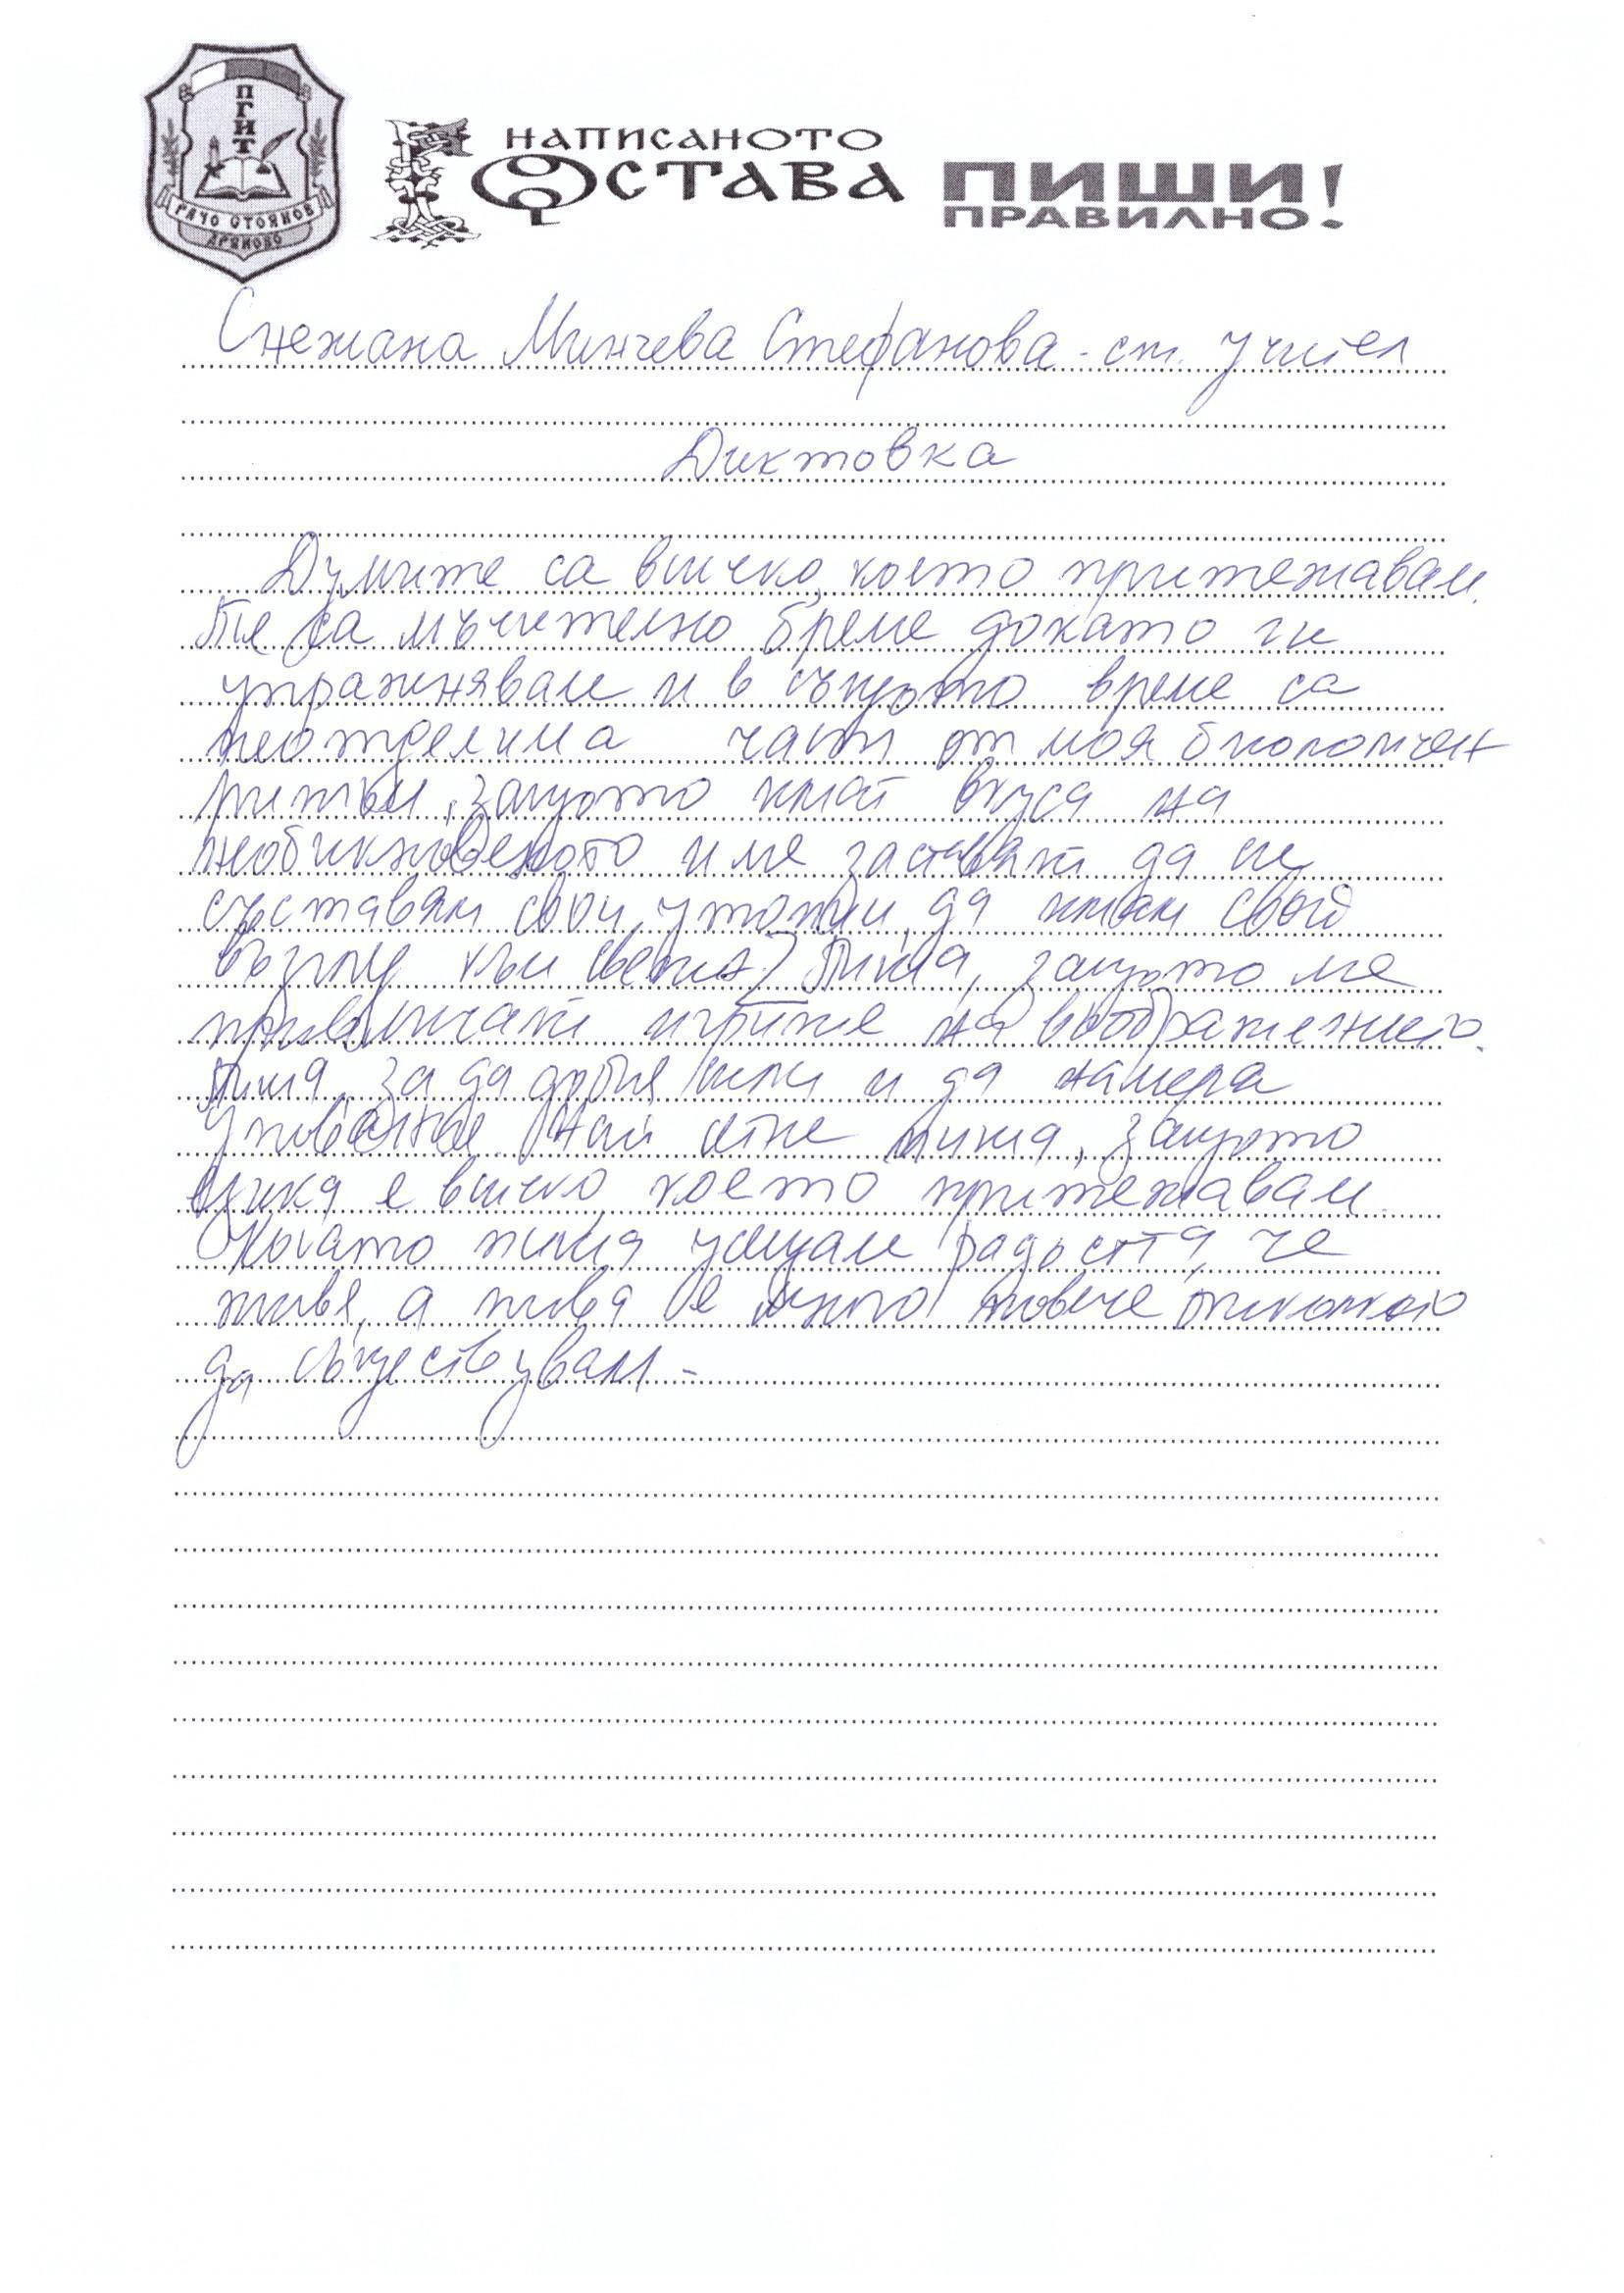 ПГИТ
РАЧО СТОЯНОВ
ДРЯНОВО
НАПИСАНОТО
ОСТАВА
ПИШИ
ПРАВИЛНО!
Снежана Минчева Стефанова - ст. учител
Диктовка
Думите са всичко, което притежавам.
Те са мъчително бреме докато ги
упражнявам и в същото време са
неотделима част от моя биологичен
ритъм, защото имат вкуса на
необикновеното и ме заставят да си
съставям свои утопии, да имам свой
възглед към света. Пиша, защото ме
привличат игрите на въображението.
Пиша, за да добия сили и да намеря
упование. Най вече пиша, защото
езика е всичко което притежавам.
Когато пиша усещам радостта, че
живея, а това е много повече отколкото
да съществувам.